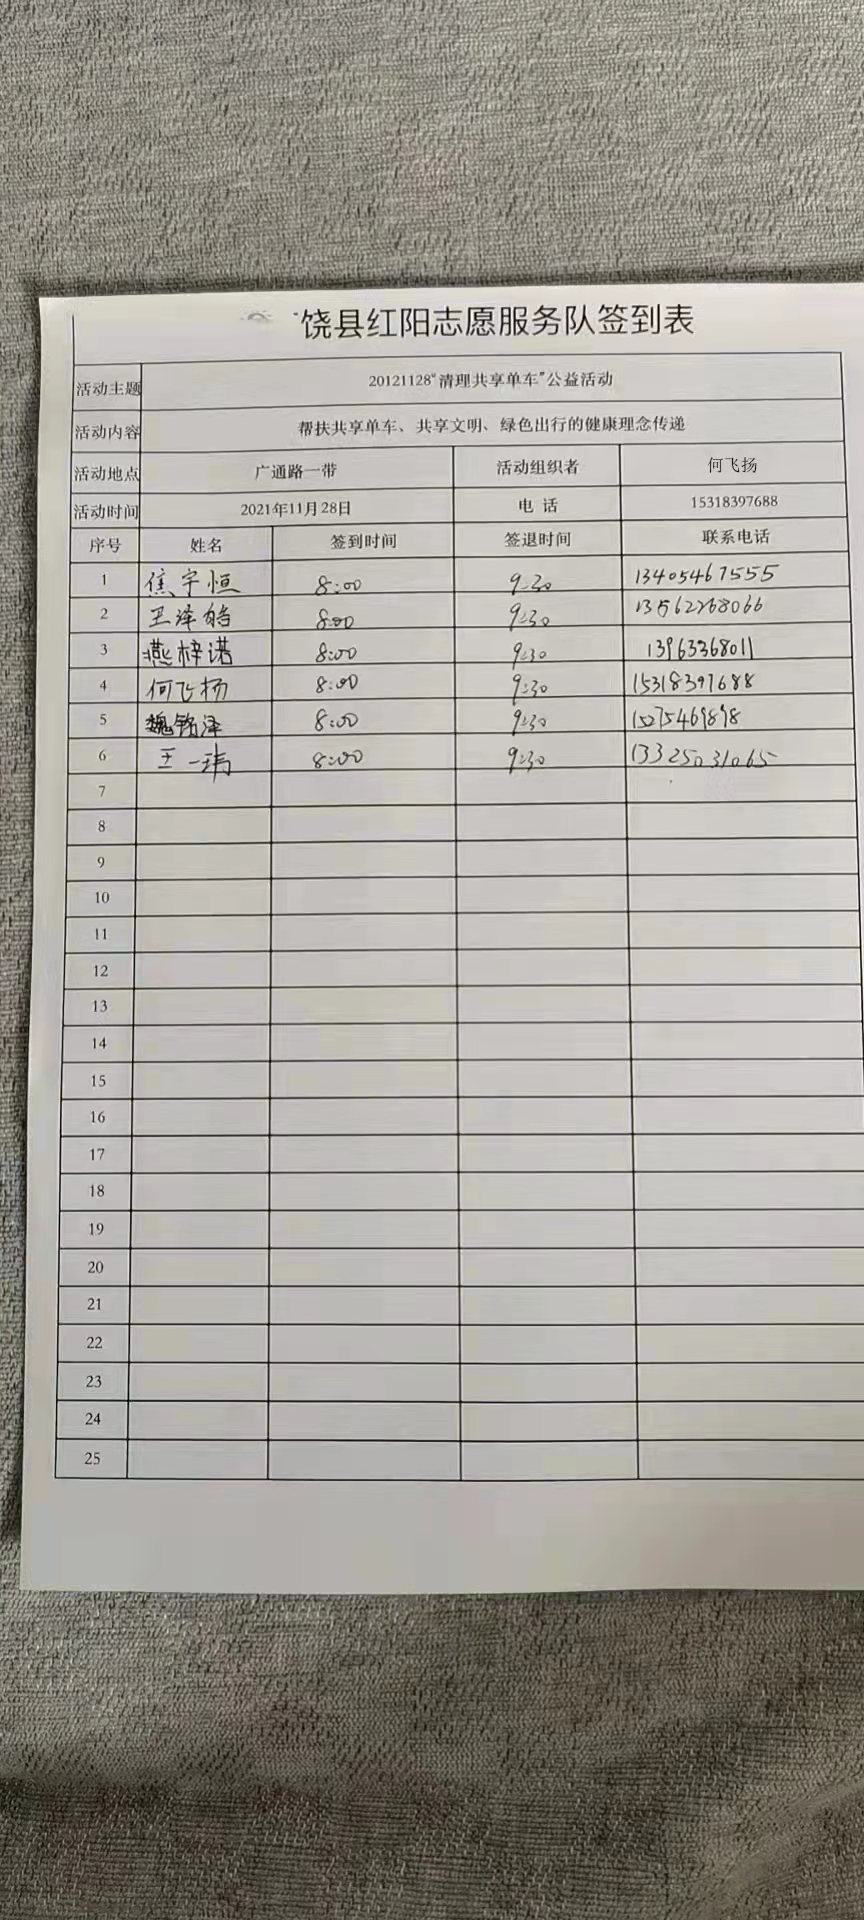 饶县红阳志愿服务队签到表
活动主题 20121128"清理共享单车"公益活动
活动内容 帮扶共享单车、共享文明、绿色出行的健康理念传递
活动地点 广通路一带 活动组织者 何飞扬
活动时间 2021年11月28日 电 话 15318397688
序号 姓名 签到时间 签退时间 联系电话
1 焦宇恒 8:00 9:30 13405467555
2 王泽皓 8:00 9:30 13562268066
3 燕梓诺 8:00 9:30 13963368011
4 何飞扬 8:00 9:30 15318397688
5 魏铭泽 8:00 9:30 15275469898
6 王一玮 8:00 9:30 13325031065
7
8
9
10
11
12
13
14
15
16
17
18
19
20
21
22
23
24
25